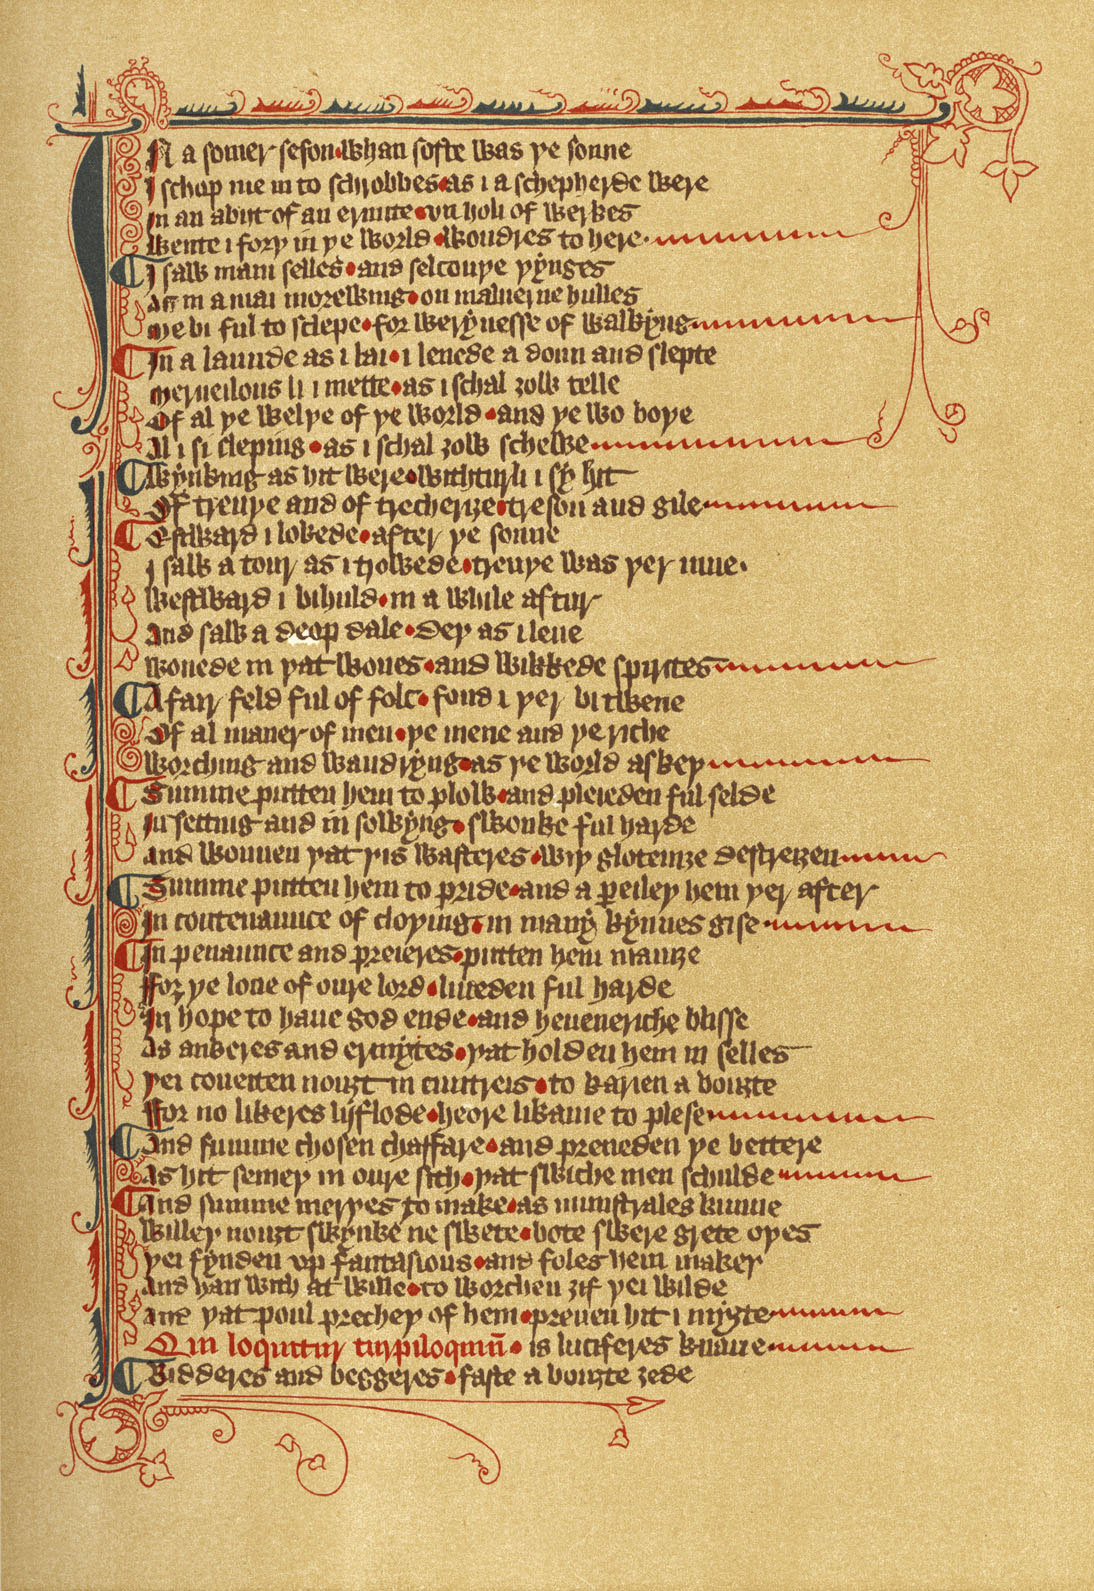 IN a somer seson · whan softe was þe sonne
I schop me in to schrobbes · as i a scheþherde were
In an abiit of an ermite · vn holi of werkes
Wente i forþ in þe world · wondres to here ·
I saw mani selles · and selcouþe þynges
As in a mai morewning · on maluerne hulles
Me bi ful to sclepe · for werynesse of walkyng
In a launde as i lai · i lenede a doun and slepte
Merueilous li i mette · as i schal ȝow telle
Of al þe welþe of þe world · and þe wo boþe
Al i si sleping · as i schal ȝow schewe
Wynking as hit were · withturli i sy hit
Of treuþe and of trecherize · treson and gile
Estward i lokede · after þe sonne
I saw a tour as i trowede · treuþe was þer inne ·
Westward i bihuld · in a while aftur
And saw a deop dale · Deþ as i leue
Wonede in þat wones · and wikkede spirites
A fair feld ful of folc · fond i þer bi twene
Of al maner of men · þe mene and þe riche
Worching and wandryng · as þe world askeþ
Summe putten hem to plow · and pleieden ful selde
In setting and in sowyng · swonke ful harde
And wonnen þat þis wasteres · wiþ glotenize destreizen
Summe putten hem to pride · and a peileþ hem þer after
In contenaunce of cloþing · in many kynnes gise
In penaunce and preieres · putten hem manize
ffor þe loue of oure lord · liueden ful harde
In hope to haue god ende · and heueneriche blisse
As ankeres and ermytes · þat holden hem in selles
þei coueiten nouȝt in cuntreis · to karien a bouȝte
ffor no likeres lyflode · heore likame to plese
And summe chosen chaffare · and preueden þe bettere
As hit semeþ in oure siȝh · þat swiche men schulde
And summe merþes to make · as munstrales kunne
Willeþ nouȝt swynke ne swete · bote swere grete oþes
þei fynden vp fantasious · and foles hem makeþ
And han with at wille · to worchen ȝif þei wilde
And þat poul precheþ of hem · preuen hit i myȝte
Qui loquitur turpiloquiū · is luciferes knaue
Bidderes and beggeres · faste a bouȝte ȝede